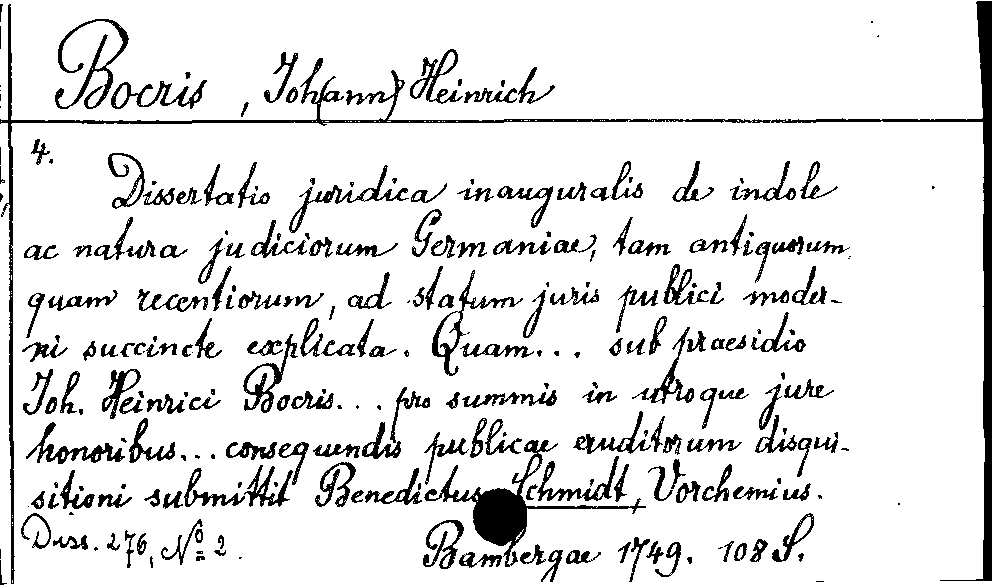 Bocris, Joh(ann) Heinrich
4.
Dissertatio juridica inauguralis de indole
ac natura judiciorum Germaniae, tam antiquorum
quam recentiorum, ad statum juris publici moder-
ni succincte explicata. Quam... sub praesidio
Joh. Heinrici Bocris... pro summis in utroque jure
honoribus... consequendis publicae eruditorum disqui-
sitioni submittit Benedictus Schmidt, Vorchemius.
Diss. 276, No 2.
Bambergae 1749. 108 S.